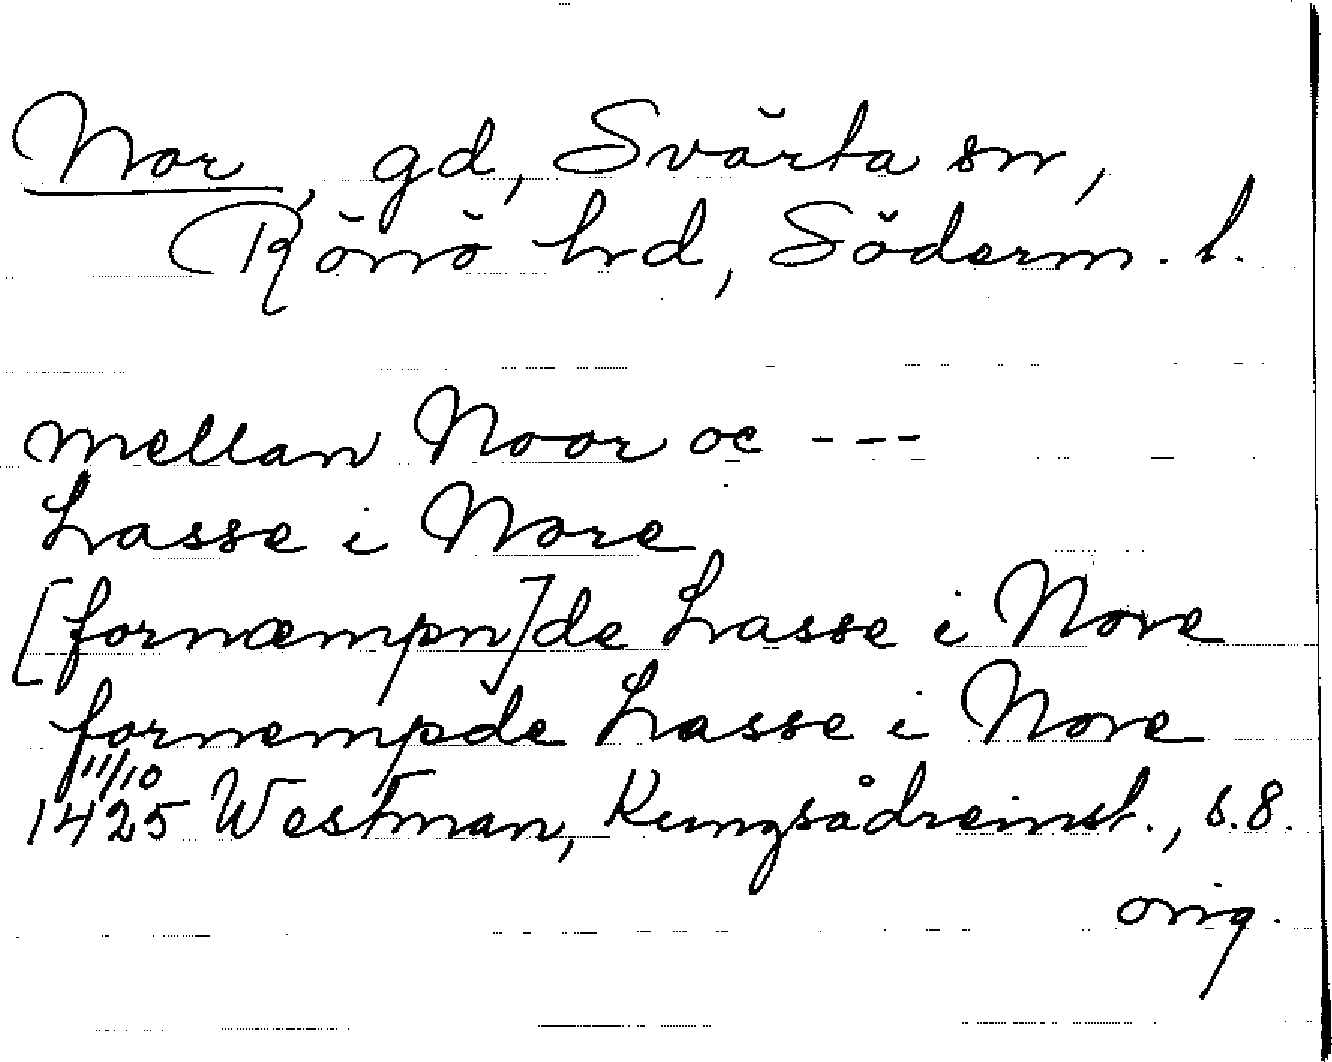 Nor, gd, Svärta sn,
Rönö hd, Söderm. l.
mellan Noor oc ---
Lasse i Nore
[fornæmpn]de Lasse i Nore
fornempde Lasse i Nore
11/10
1425 Westman, Kungsådreinst., s.8.
orig.